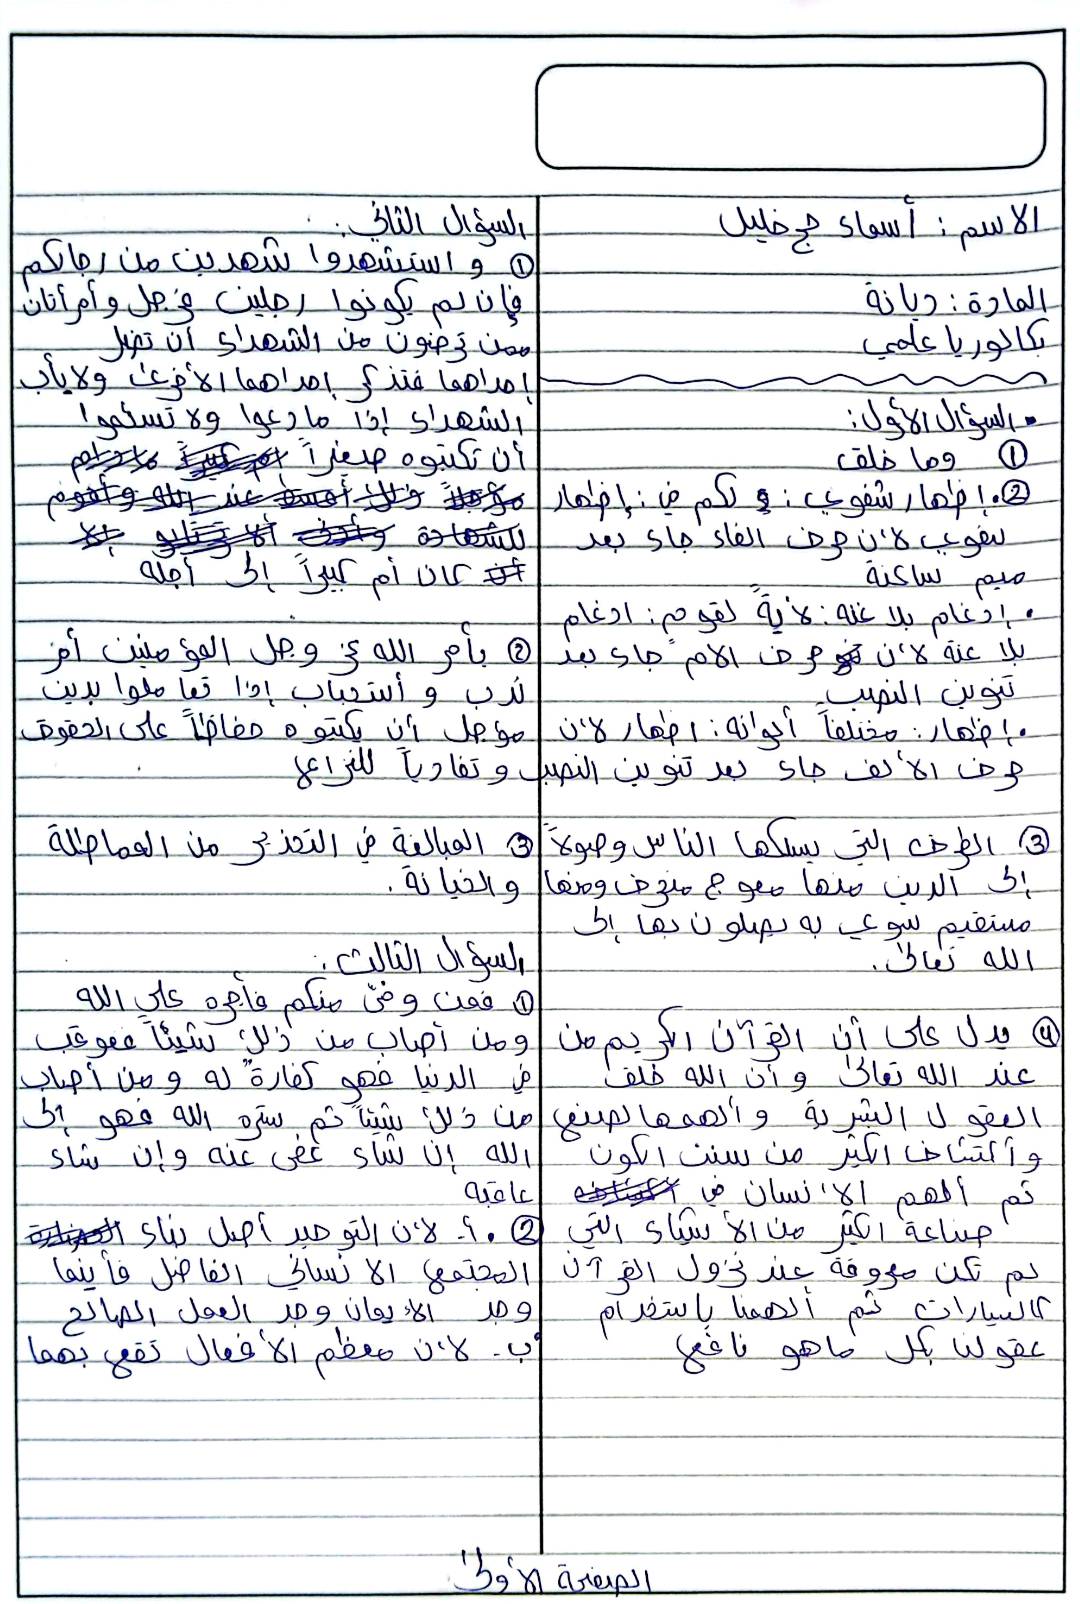 الاسم : أسماء حج خليل
المادة : ديانة
بكالوريا علمي
السؤال الأول:
① وما خلق
② . إظهار شفوي : و لكم في : إظهار
شفوي لأن حرف الفاء جاء بعد
ميم ساكنة
. إدغام بلا غنة : لأيةً لقوم : ادغام
بلا غنة لأن حرف الام جاء بعد
تنوين النصب
. إظهار : مختلفاً ألوانه : اظهار لأن
حرف الألف جاء بعد تنوين النصب
③ الطرق التي يسلكها الناس وصولاً
إلى الدين منها معوج منحرف ومنها
مستقيم سوي به يصلون بها إلى
الله تعالى .
④ يدل على أن القرآن الكريم من
عند الله تعالى وأن الله خلق
العقول البشرية وألهمها لصنع
وأكتشاف الكثير من سنن الكون
ثم ألهم الإنسان في
صناعة الكثير من الأشياء التي
لم تكن معروفة عند نزول القرآن
كالسيارات ثم ألهمنا باستخدام
عقولنا بكل ماهو نافع
السؤال الثاني :
① و استشهدوا شهدين من رجالكم
فإن لم يكونوا رجلين فرجل وأمرأتان
ممن ترضون من الشهداء أن تضل
إحداهما فتذكر إحداهما الأخرى ولا يأب
الشهداء إذا ما دعوا ولا تسئموا
أن تكتبوه صغيراً
كان أم كبيراً إلى أجله
② يأمر الله عز وجل المؤمنين أمر
ندب و أستحباب إذا تعاملوا بدين
مؤجل أن يكتبوه حفاظاً على الحقوق
و تفادياً للنزاع
③ المبالغة في التحذير من المماطلة
والخيانة .
السؤال الثالث :
① فمن وفىّ منكم فأجره على الله
ومن أصاب من ذلك شيئاً فعوقب
في الدنيا فهو كفارة له ومن أصاب
من ذلك شيئاً ثم ستره الله فهو إلى
الله إن شاء عفى عنه وإن شاء
عاقبه
② . أ- لأن التوحيد أصل بناء
المجتمع الانساني الفاضل فأينما
وجد الإيمان وجد العمل الصالح
ب- لأن معظم الأفعال تقع بهما
الصفحة الأولى